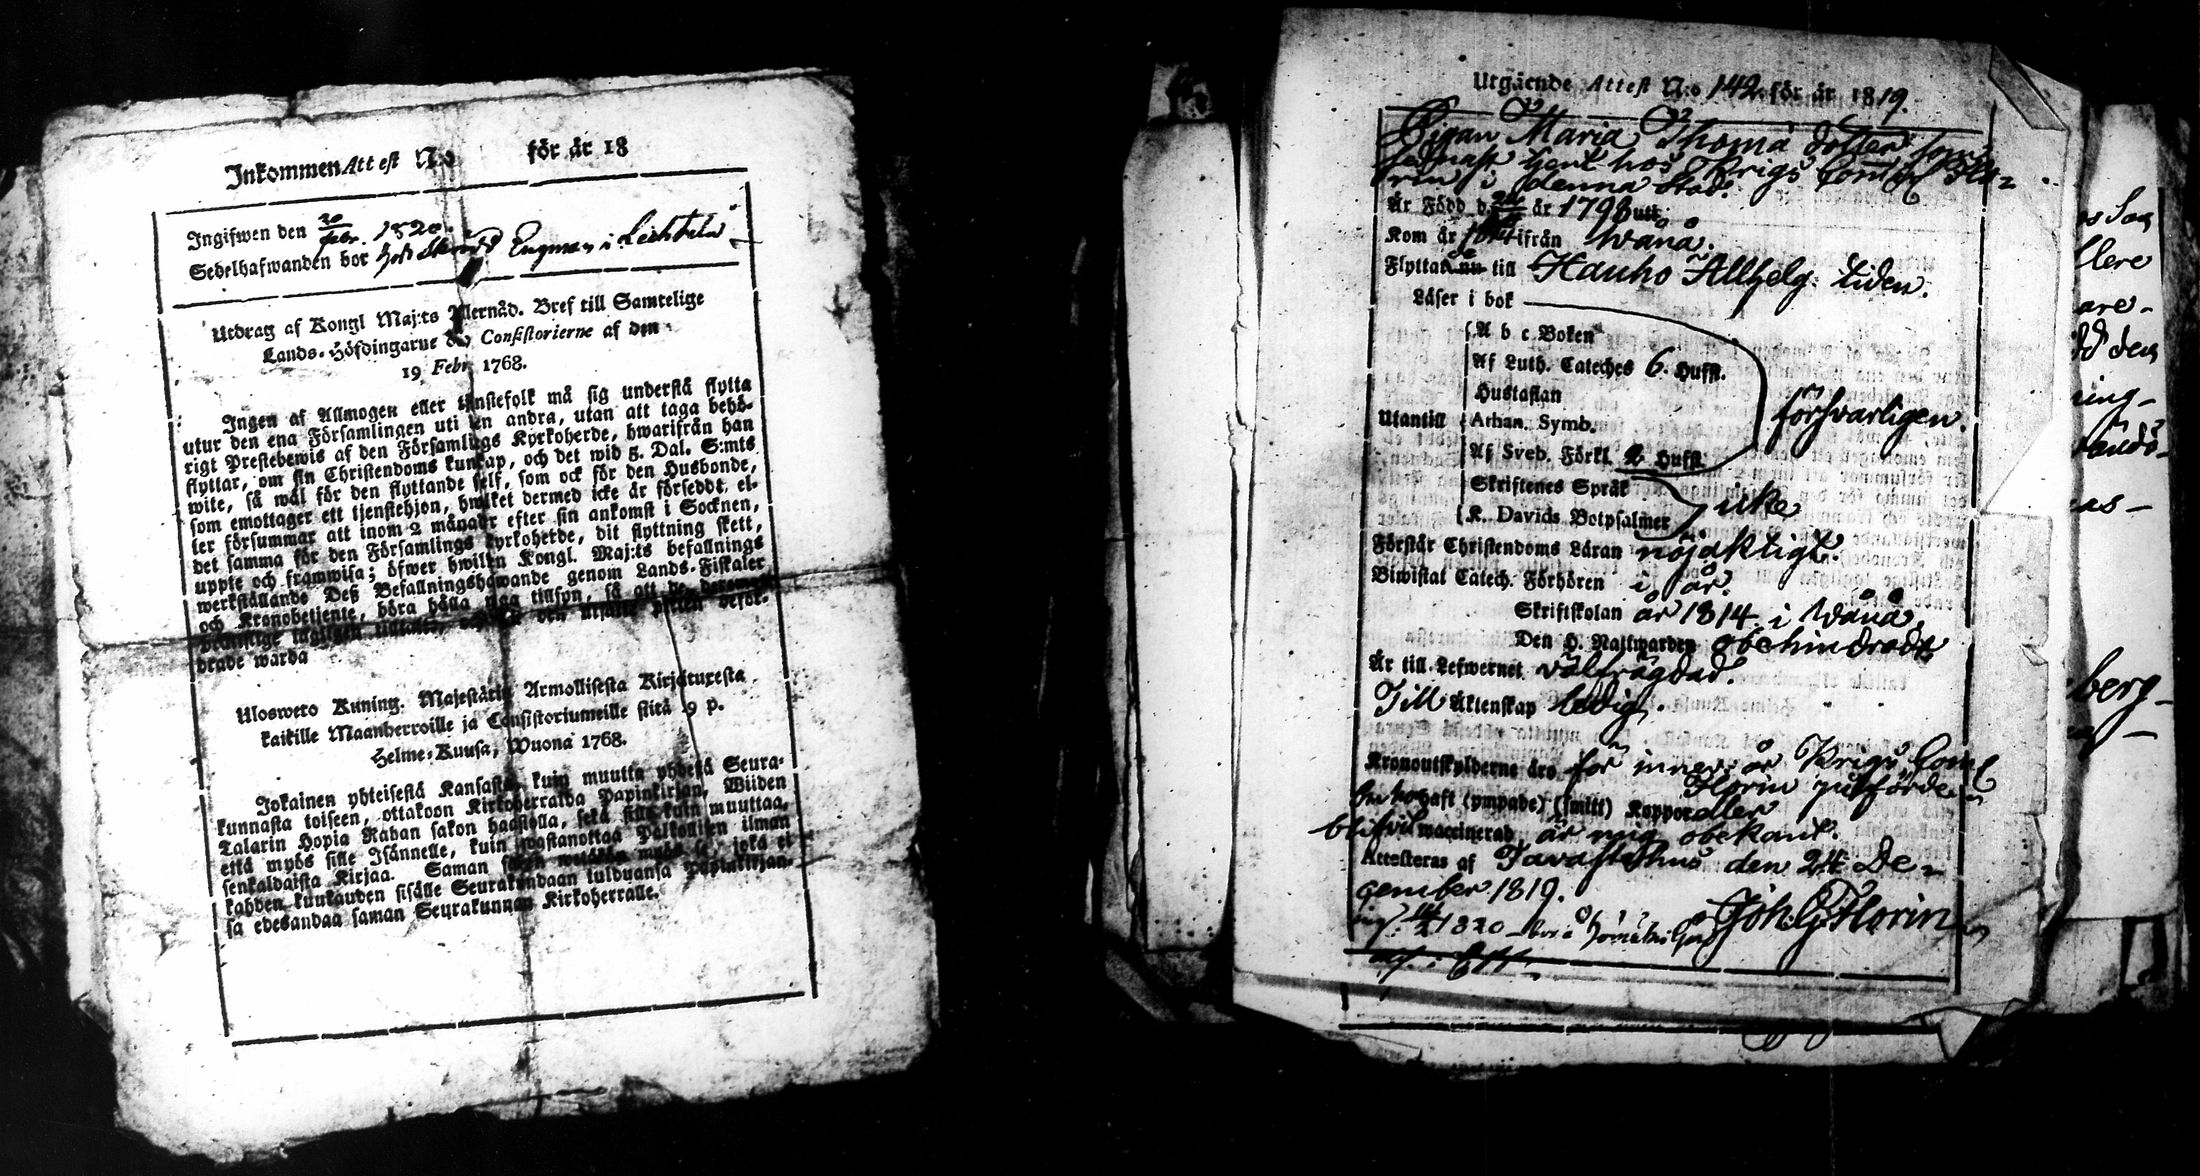 Inkommen Attest N:o för år 18
Ingifwen den 20 Febr. 1820.
Sedelhafwanden bor hos Engman i Lechtila
Utdrag af Kongl Maj:ts Allernåd. Bref till Samtelige
Lands-Höfdingarne och Consistorierne af den
19 Febr. 1768.
Ingen af Allmogen eller tjenstefolk må sig understå flytta
utur den ena Församlingen uti en andra, utan att taga behö-
rigt Prestebewis af den Församlings Kyrkoherde, hwarifrån han
flyttar, om sin Christendoms kunskap, och det wid 5. Dal. S:mts
wite, så wäl för den flyttande self, som ock för den Husbonde,
som emottager ett tjenstehjon, hwilket dermed icke är försedt, el-
ler försummar att inom 2 månader efter sin ankomst i Socknen,
det samma för den Församlings Kyrkoherde, dit flyttning skett,
uppte och framwisa; öfwer hwilken Kongl. Maj:ts befallnings
werkställande Deß Befallningshafwande genom Lands-Fiskaler
och Kronobetjente, böra hålla noga tillsyn, så att de deremot
brottslige lagligen tilltalas, och till den utsatte plikten befor-
drade warda
Ulosweto Kuning. Majestätin Armollisesta Kirjoituxesta
kaikille Maanherroille ja Consistoriumeille siitä 19 p.
Helme-Kuusa, Wuona 1768.
Jokainen yhteisestä Kansasta, kuin muutta yhdestä Seura-
kunnasta toiseen, ottakoon Kirkoherralda Papinkirjan, Wiiden
Talarin Hopia Rahan sakon haastolla, sekä sille kuin muuttaa,
että myös sille Isännelle, kuin wastanottaa Palkollisen ilman
senkaldaista Kirjaa. Saman sakon wetäkän myös se, joka ei
kahden kuukauden sisälle Seurakundaan tulduansa Papinkirjan-
sa edesandaa saman Seurakunnan Kirkoherralle.
Utgående Attest N:o 142. för år 1819.
Pigan Maria Thomä dotter som
sednast tjent hos Krigs Com Flo-
rin i denna stad.
Är Född d. år 179 uti
Kom år 1814 ifrån Wånå.
Flyttade nu till Hauho Allhelg. tiden.
Läser i bok
A b c Boken
Af Luth. Cateches 6. Hufst.
Hustaflan
Utantill Athan. Symb.
Af Sveb. Förkl. 2 Hufst.
försvarligen.
Skriftenes Språk
K. Davids Botpsalmer
icke
Förstår Christendoms Läran nöjaktigt.
Biwistat Catech. Förhören i år.
Skriftskolan år 1814. i Wånå.
Den H. Nattwarden obehindradt
Är till Lefwernet välfrägdad.
Till Äktenskap ledig.
Kronoutskylderne äro för innev. år Krigs Com
Florin påförde
Om hon haft (ympade) (smitt) Koppor eller
blifvit waccinerad är mig obekant.
Attesteras af Tavastehus den 24 De-
cember 1819.
Joh. G. Florin
1820